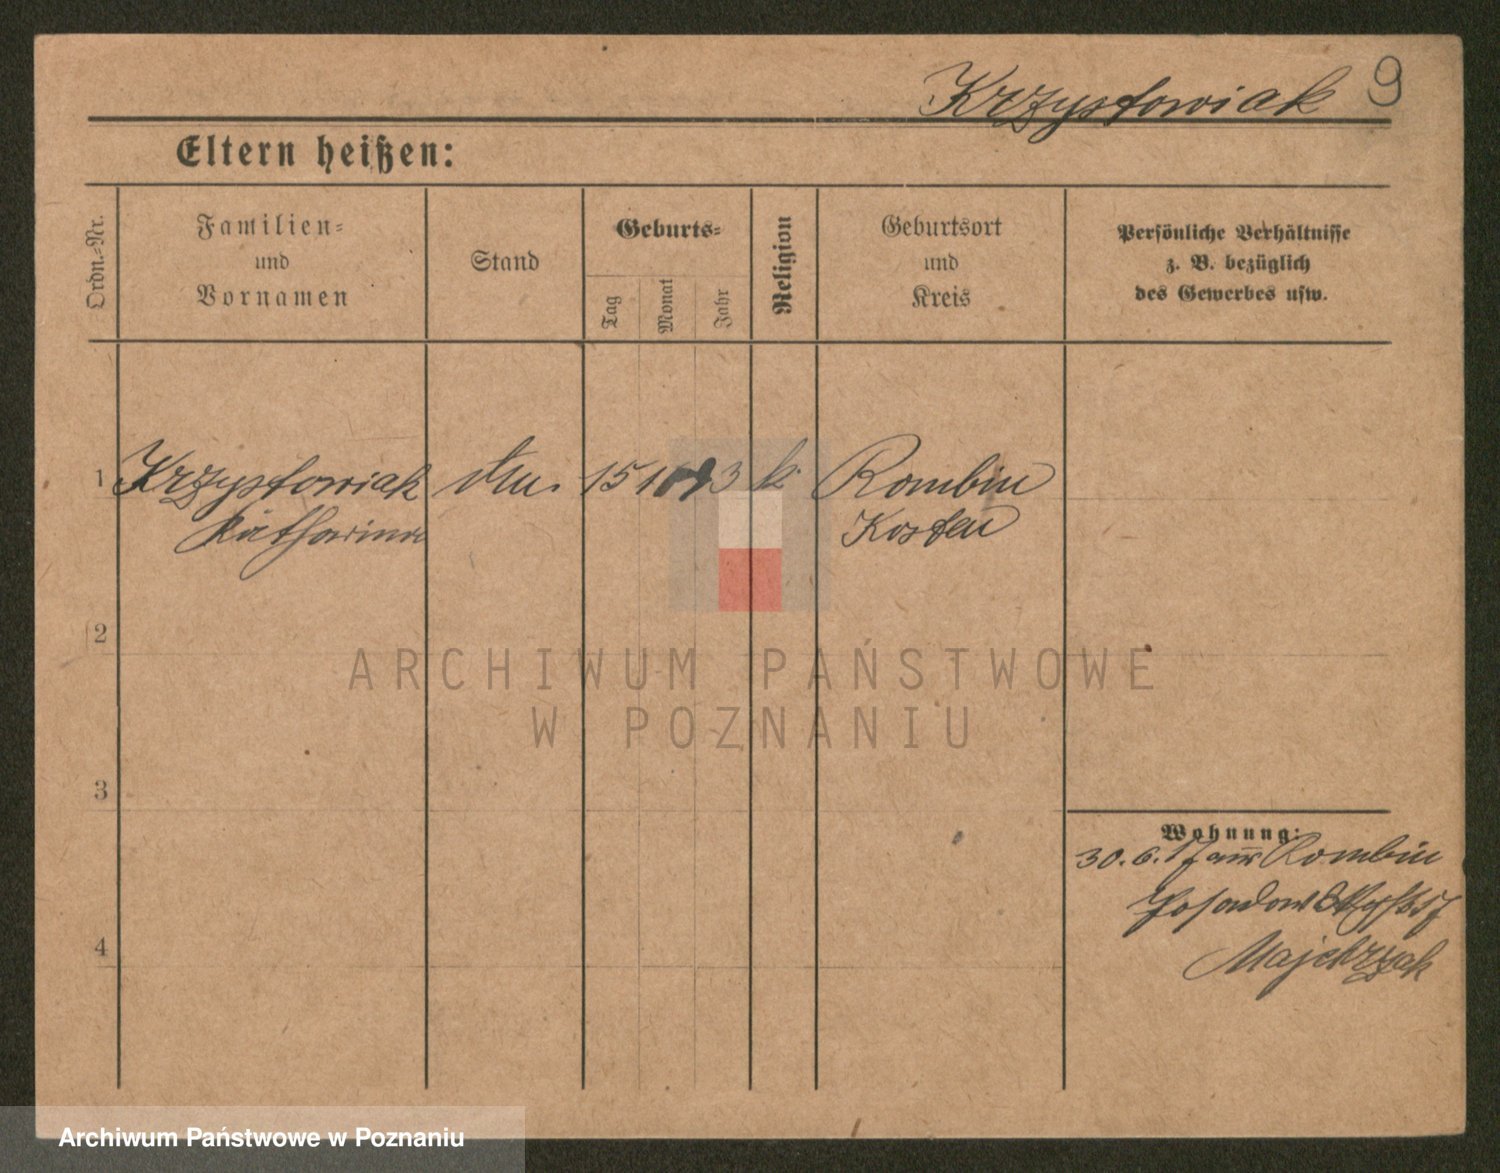 Krzystowiak 9
Eltern heißen:
Ordn.-Nr.
Familien-
und
Vornamen
Stand
Geburts-
Tag
Monat
Jahr
Religion
Geburtsort
und
Kreis
Persönliche Verhältnisse
z. B. bezüglich
des Gewerbes usw.
1 Krzystowiak 15 1 3 k. Rombin
Katharina Kosten
2
3
4
Wohnung:
30. 6. 17 aus Rombin
Majchrzak
ARCHIWUM PAŃSTWOWE
W POZNANIU
Archiwum Państwowe w Poznaniu